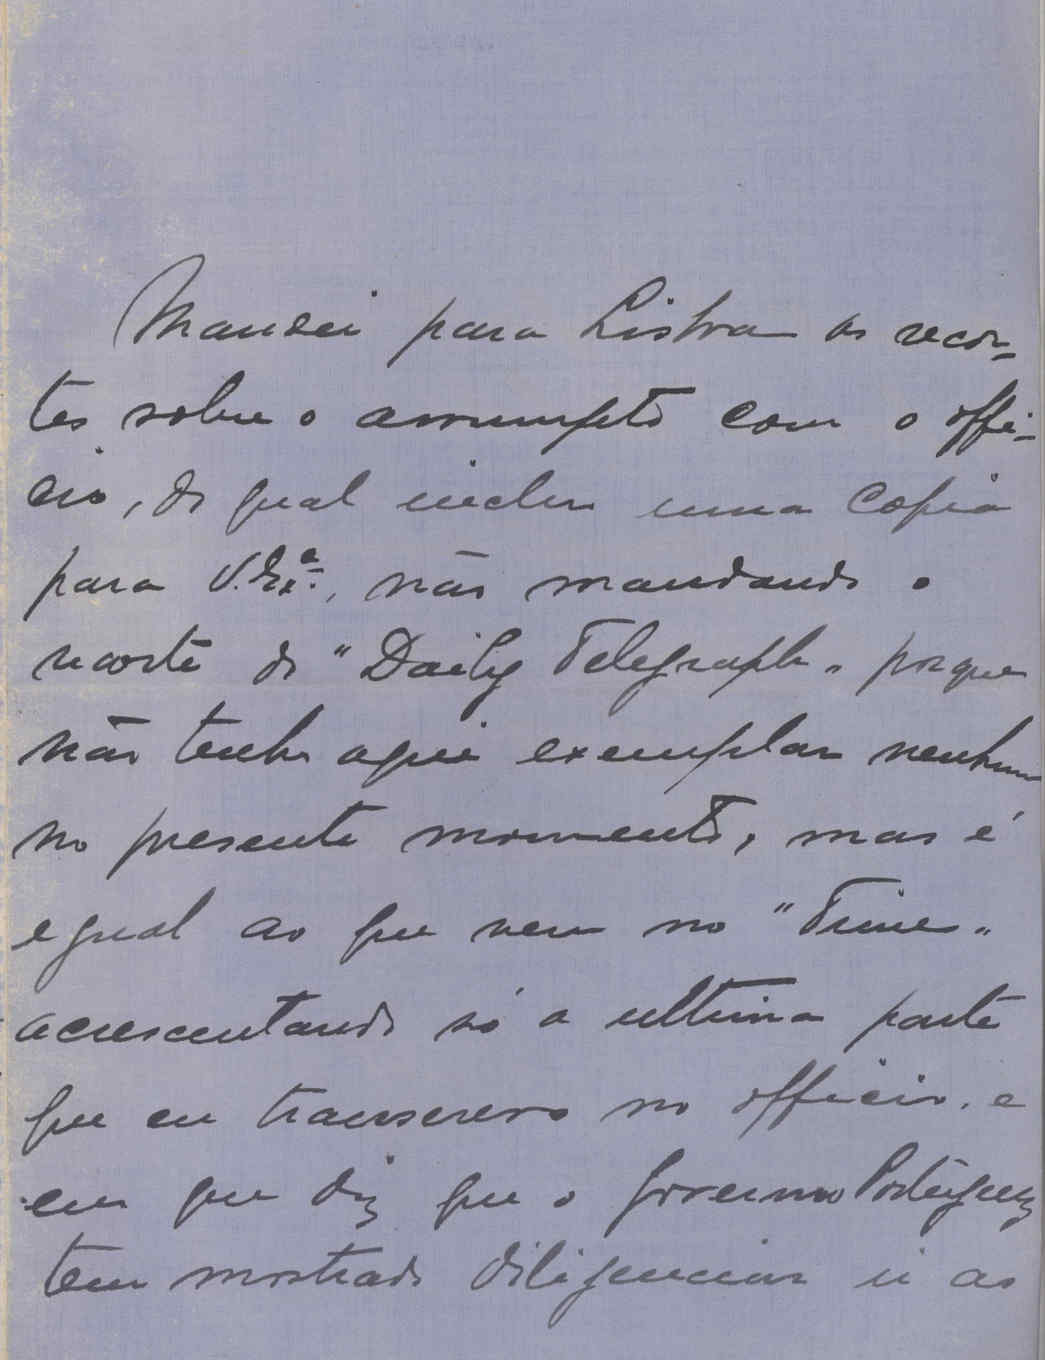 Mandei para Lisboa os recor-
tes sobre o assumpto com o offi-
cio, do qual incluo uma copia
para V. Ex.ª, não mandando o
recorte do "Daily Telegraph" porque
não tenho aqui exemplar nenhum
no presente momento, mas é
egual ao que vem no "Times"
acrescentando só a ultima parte
que eu transcrevo no officio, e
em que diz que o Governo Portuguez
tem mostrado diligenciar ir ao